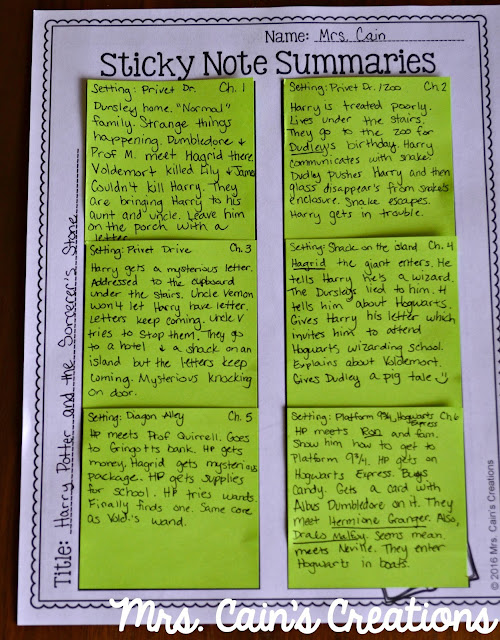 Name: Mrs. Cain
Sticky Note Summaries
Title: Harry Potter and the Sorcerer's Stone
Setting: Privet Dr. Ch. 1
Dursley home. "Normal"
family. Strange things
happening. Dumbledore &
Prof M. meet Hagrid there.
Voldemort killed Lily & James
Couldn't kill Harry. They
are bringing Harry to his
aunt and uncle. Leave him
on the porch with a
letter
Setting: Privet Dr. / Zoo Ch. 2
Harry is treated poorly.
Lives under the stairs.
They go to the zoo for
Dudley's birthday. Harry
communicates with snake.
Dudley pushes Harry and then
glass disappear's from snake's
enclosure. Snake escapes.
Harry gets in trouble.
Setting: Privet Drive Ch. 3
Harry gets a mysterious letter.
Addressed to the cupboard
under the stairs. Uncle Vernon
won't let Harry have letter.
Letters keep coming. Uncle V
tries to stop them. They go
to a hotel & a shack on an
island but the letters keep
coming. Mysterious knocking
on door.
Setting: Shack on the island Ch. 4
Hagrid the giant enters. He
tells Harry he's a wizard.
The Dursleys lied to him. H
tells him about Hogwarts.
Gives Harry his letter which
invites him to attend
Hogwarts wizarding school.
Explains about Voldemort.
Gives Dudley a pig tale
Setting: Diagon Alley Ch. 5
HP meets Prof Quirrell. Goes
to Gringotts bank. HP gets
money, Hagrid gets mysterious
package. HP gets supplies
for school. HP tries wands.
Finally finds one. Same core
as Vold-'s wand.
Setting: Platform 9 3/4, Hogwarts Express Ch. 6
HP meets Ron and fam.
Show him how to get to
Platform 9 3/4. HP gets on
Hogwarts Express. Buys
candy. Gets a card with
Albus Dumbledore on it. They
meet Hermione Granger. Also,
Draco Malfoy. Seems mean.
meets Neville. They enter
Hogwarts in boats.
© 2016 Mrs. Cain's Creations
Mrs. Cain's Creations